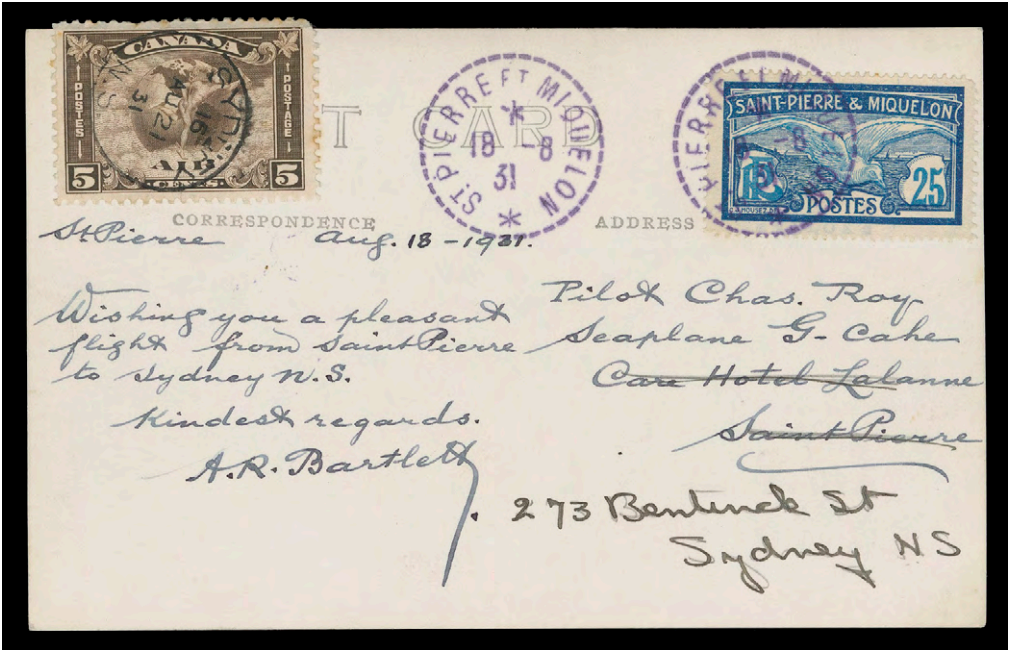 CANADA
POSTAGE
POSTAGE
AIR
5 CENTS 5
SYDNEY
16
AU 21
31
N.S.
POST CARD
ST PIERRE ET MIQUELON
18 -8
31
SAINT-PIERRE & MIQUELON
25
POSTES
CORRESPONDENCE
ADDRESS
St Pierre Aug. 18 - 1931.
Wishing you a pleasant
flight from Saint Pierre
to Sydney N.S.
Kindest regards.
A.R. Bartlett.
Pilot Chas. Roy
Seaplane G- Cahe
Care Hotel Lalanne
Saint Pierre
273 Bentinck St
Sydney NS